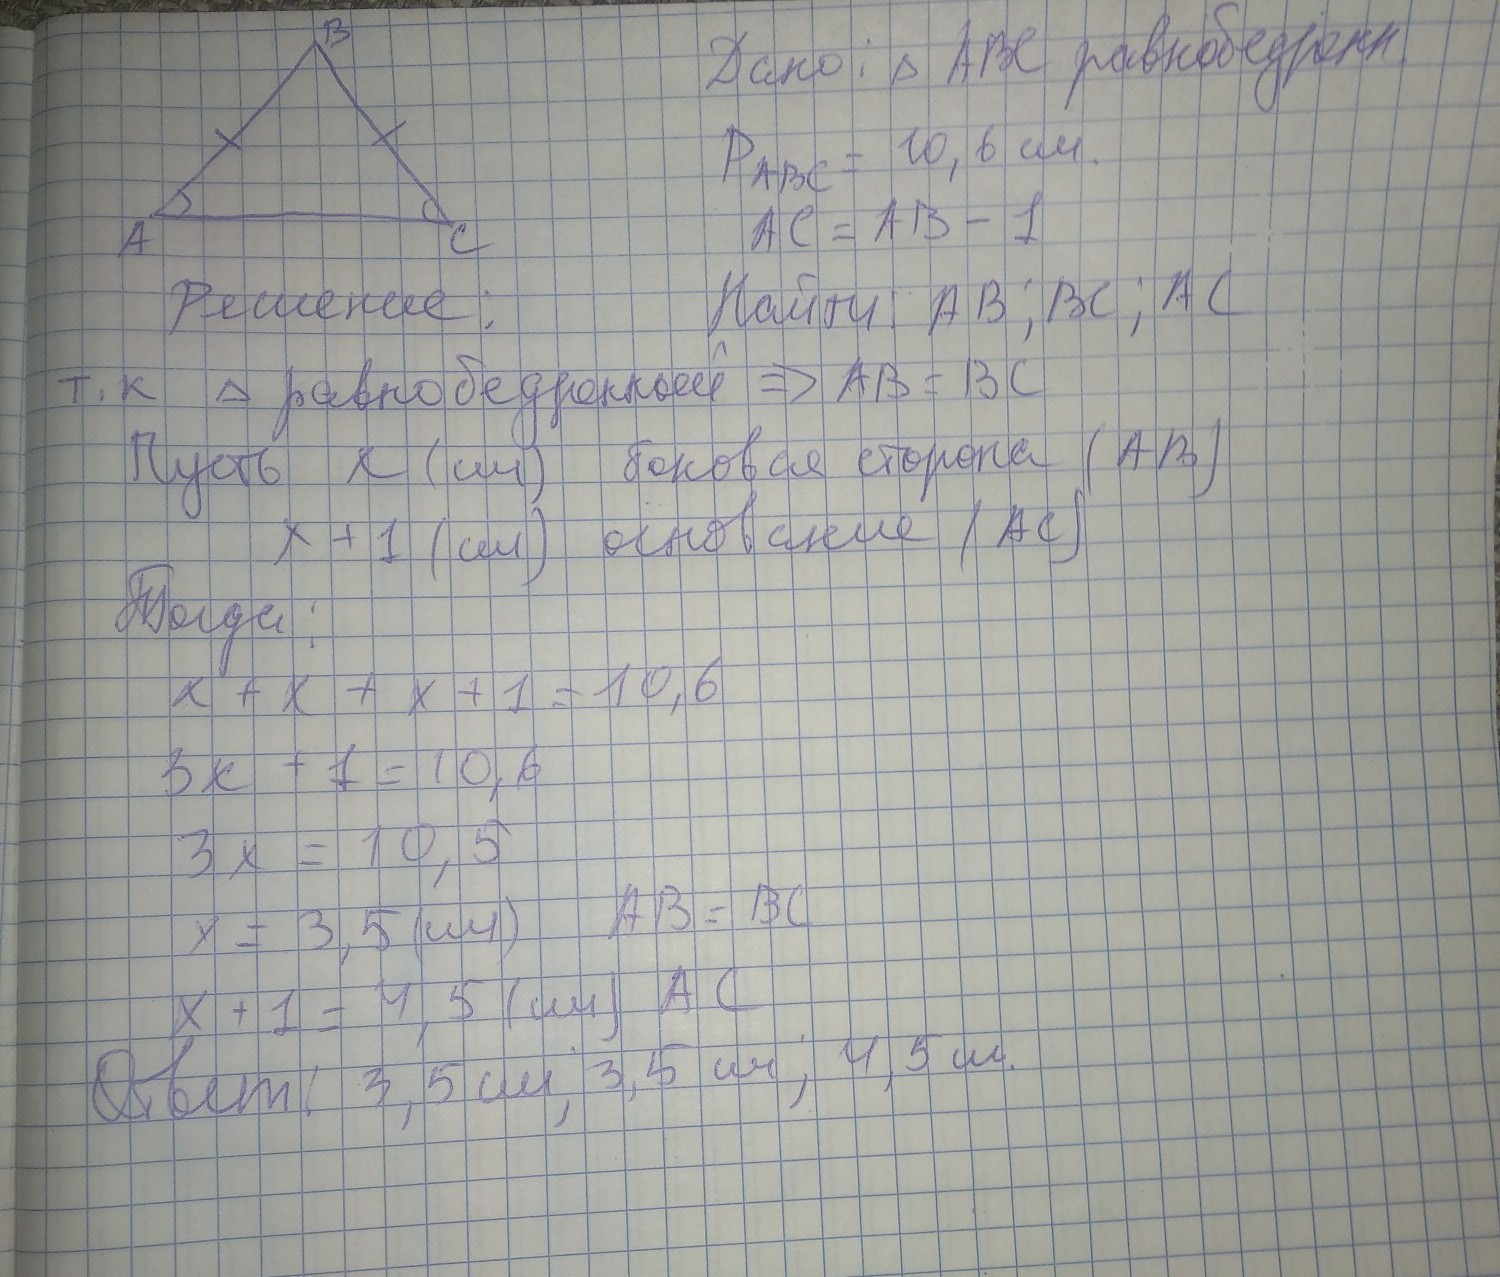 B
A
C
Дано: △ ABC равнобедренн.
P ABC = 10,6 см.
AC = AB - 1
Найти: AB; BC; AC
Решение:
т.к △ равнобедренный => AB = BC
Пусть x (см) боковая сторона (AB)
x + 1 (см) основание (AC)
Тогда:
x + x + x + 1 = 10,6
3x + 1 = 10,6
3x = 10,5
x = 3,5 (см) AB = BC
x + 1 = 4,5 (см) AC
Ответ: 3,5 см; 3,5 см; 4,5 см.